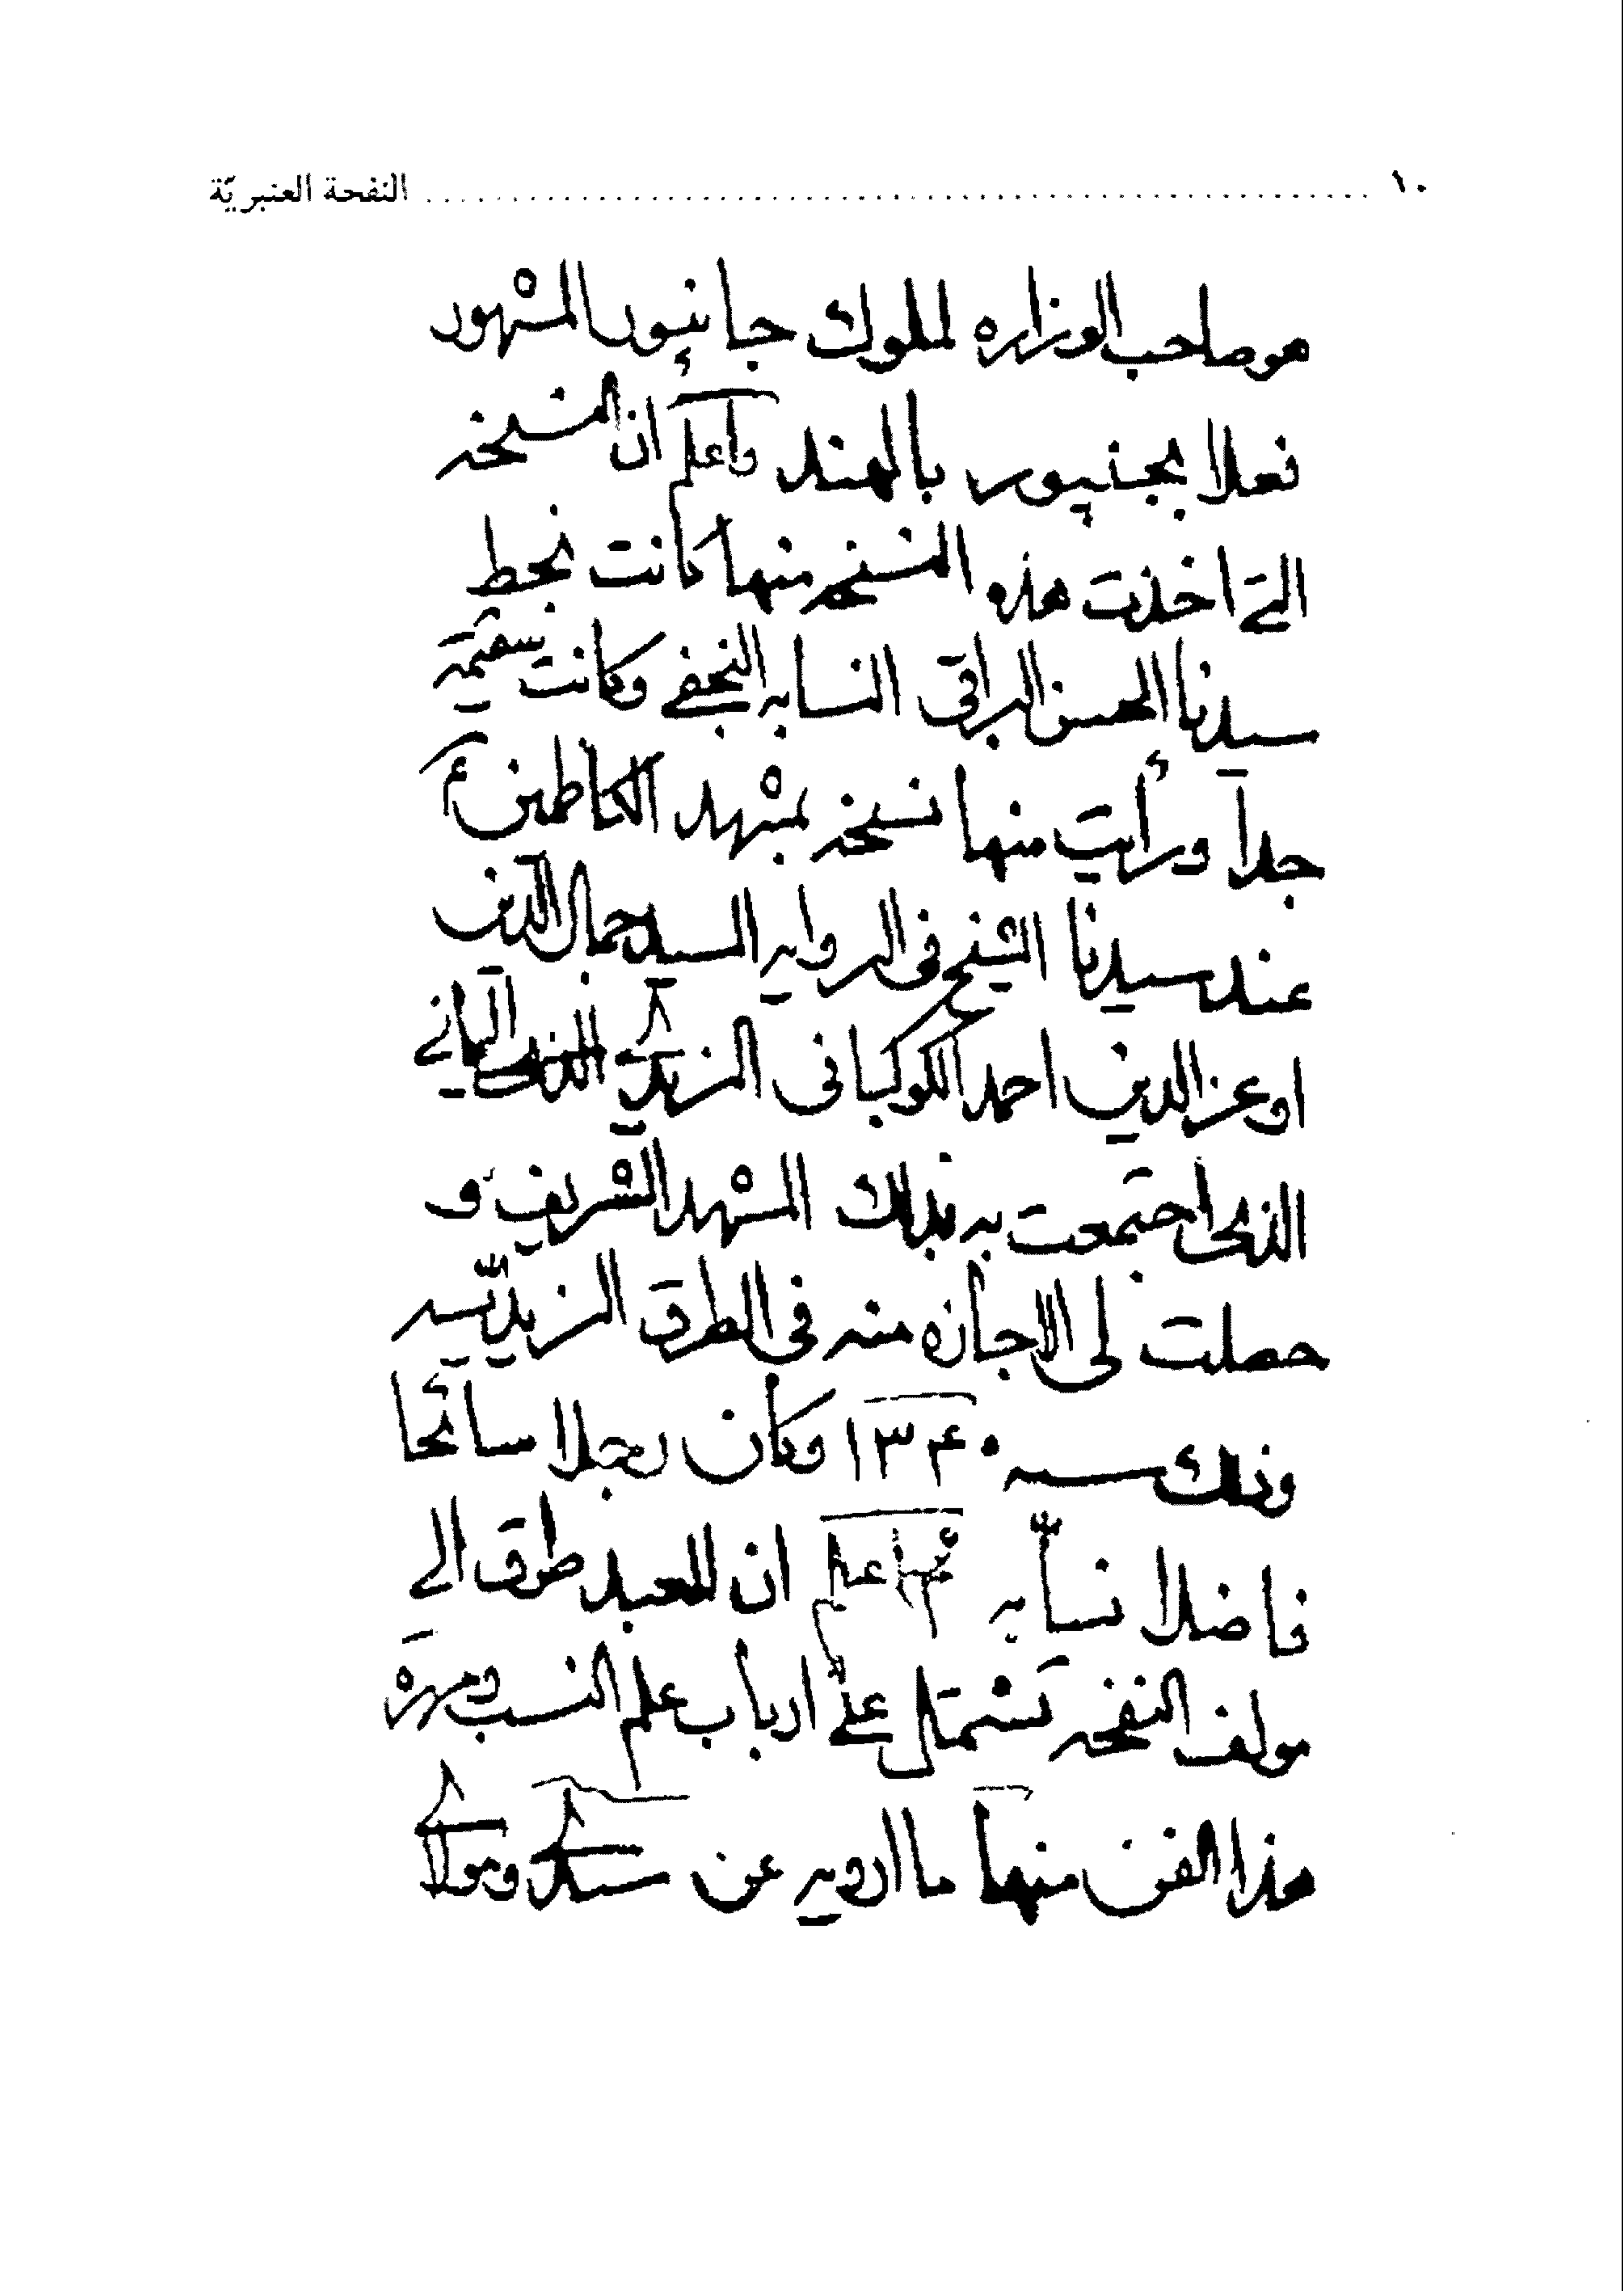 ١٠ ........ النفحة العنبريّة
هو صاحب الوزاره لملوك جانپور المشهور
فعلا بجنپور بالهند واعلم ان النسخه
التي اخذت هذه النسخه منها كانت بخط
سيدنا الحسن البراقي النسابه النجفي وكانت سقيمه
جداً ورأيت منها نسخه بمشهد الكاظمين ع
عند سيدنا الشيخ في الروايه السيد جمال الدين
او عز الدين احمد الكوكباني الزيدي اليماني
الذي اجتمعت به بذلك المشهد الشريف و
حصلت لي الاجازه منه في الطرق الزيديّه
وذلك سنه ١٣٤٠ وكان رجلا سائحا
فاضلا نسّابه ثم اعلم ان للعبد طرق الي
مولف النفحه تشتمل علي ارباب علم النسب ومهرة
هذا الفن منها ما ارويه عن سيدي ومولاي